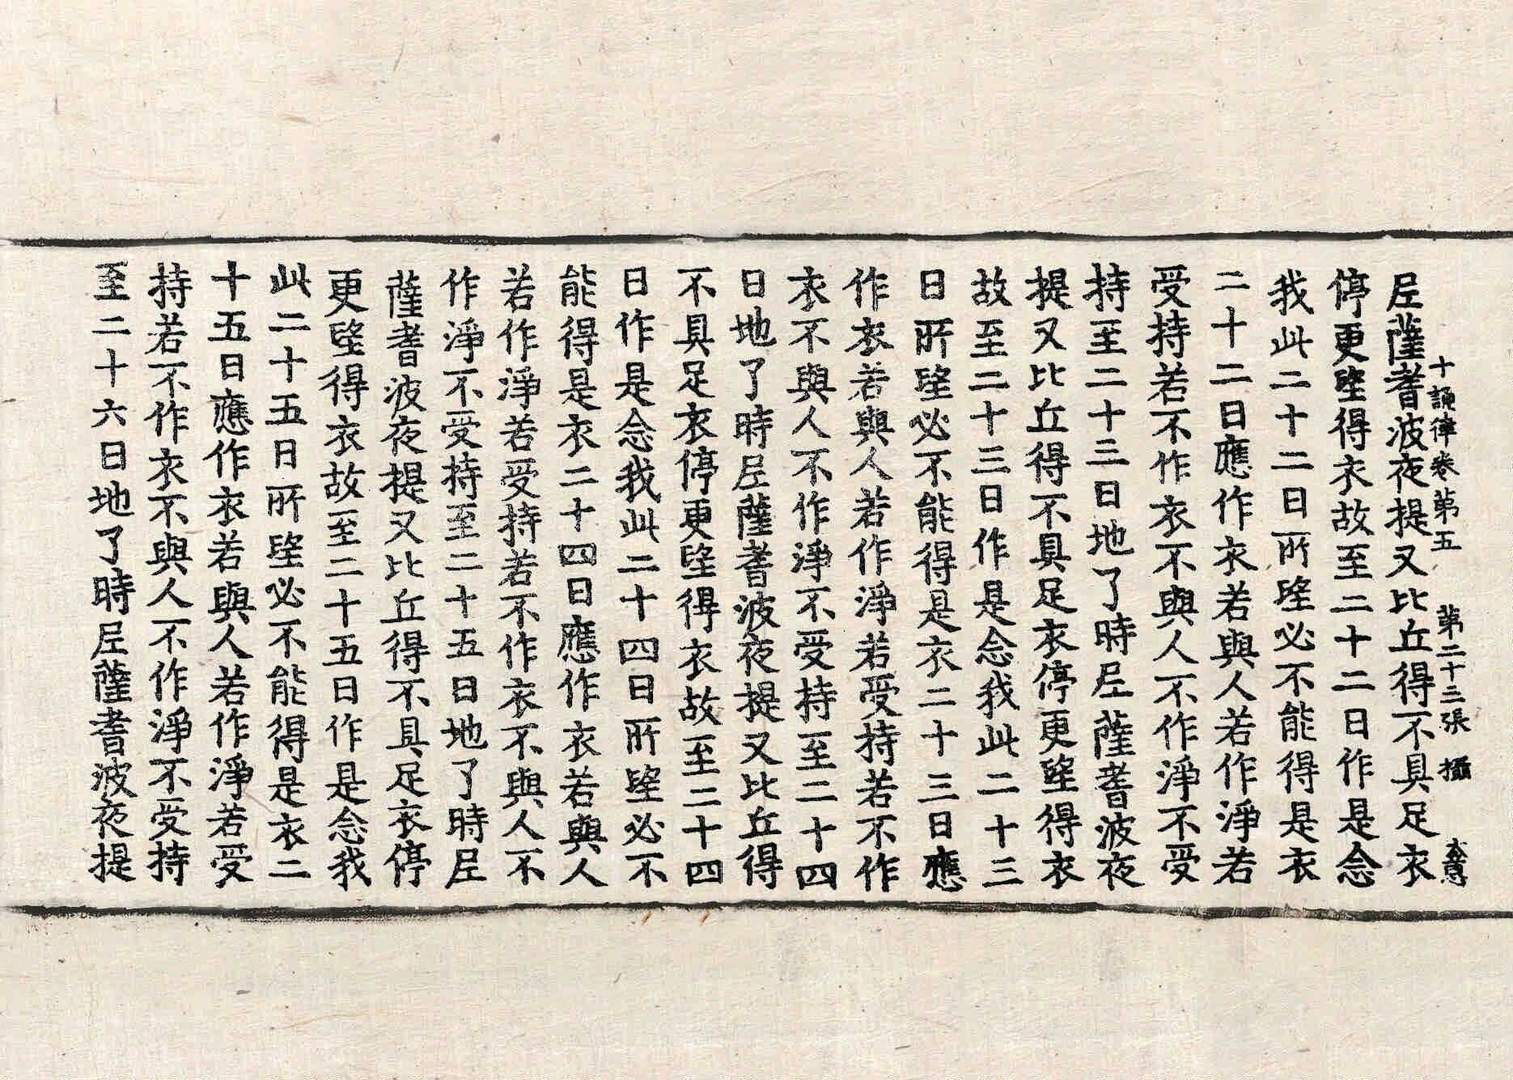 十誦律卷第五 第二十三張 攝
尼薩耆波夜提又比丘得不具足衣
停更望得衣故至二十二日作是念
我此二十二日所望必不能得是衣
二十二日應作衣若與人若作淨若
受持若不作衣不與人不作淨不受
持至二十三日地了時尼薩耆波夜
提又比丘得不具足衣停更望得衣
故至二十三日作是念我此二十三
日所望必不能得是衣二十三日應
作衣若與人若作淨若受持若不作
衣不與人不作淨不受持至二十四
日地了時尼薩耆波夜提又比丘得
不具足衣停更望得衣故至二十四
日作是念我此二十四日所望必不
能得是衣二十四日應作衣若與人
若作淨若受持若不作衣不與人不
作淨不受持至二十五日地了時尼
薩耆波夜提又比丘得不具足衣停
更望得衣故至二十五日作是念我
此二十五日所望必不能得是衣二
十五日應作衣若與人若作淨若受
持若不作衣不與人不作淨不受持
至二十六日地了時尼薩耆波夜提